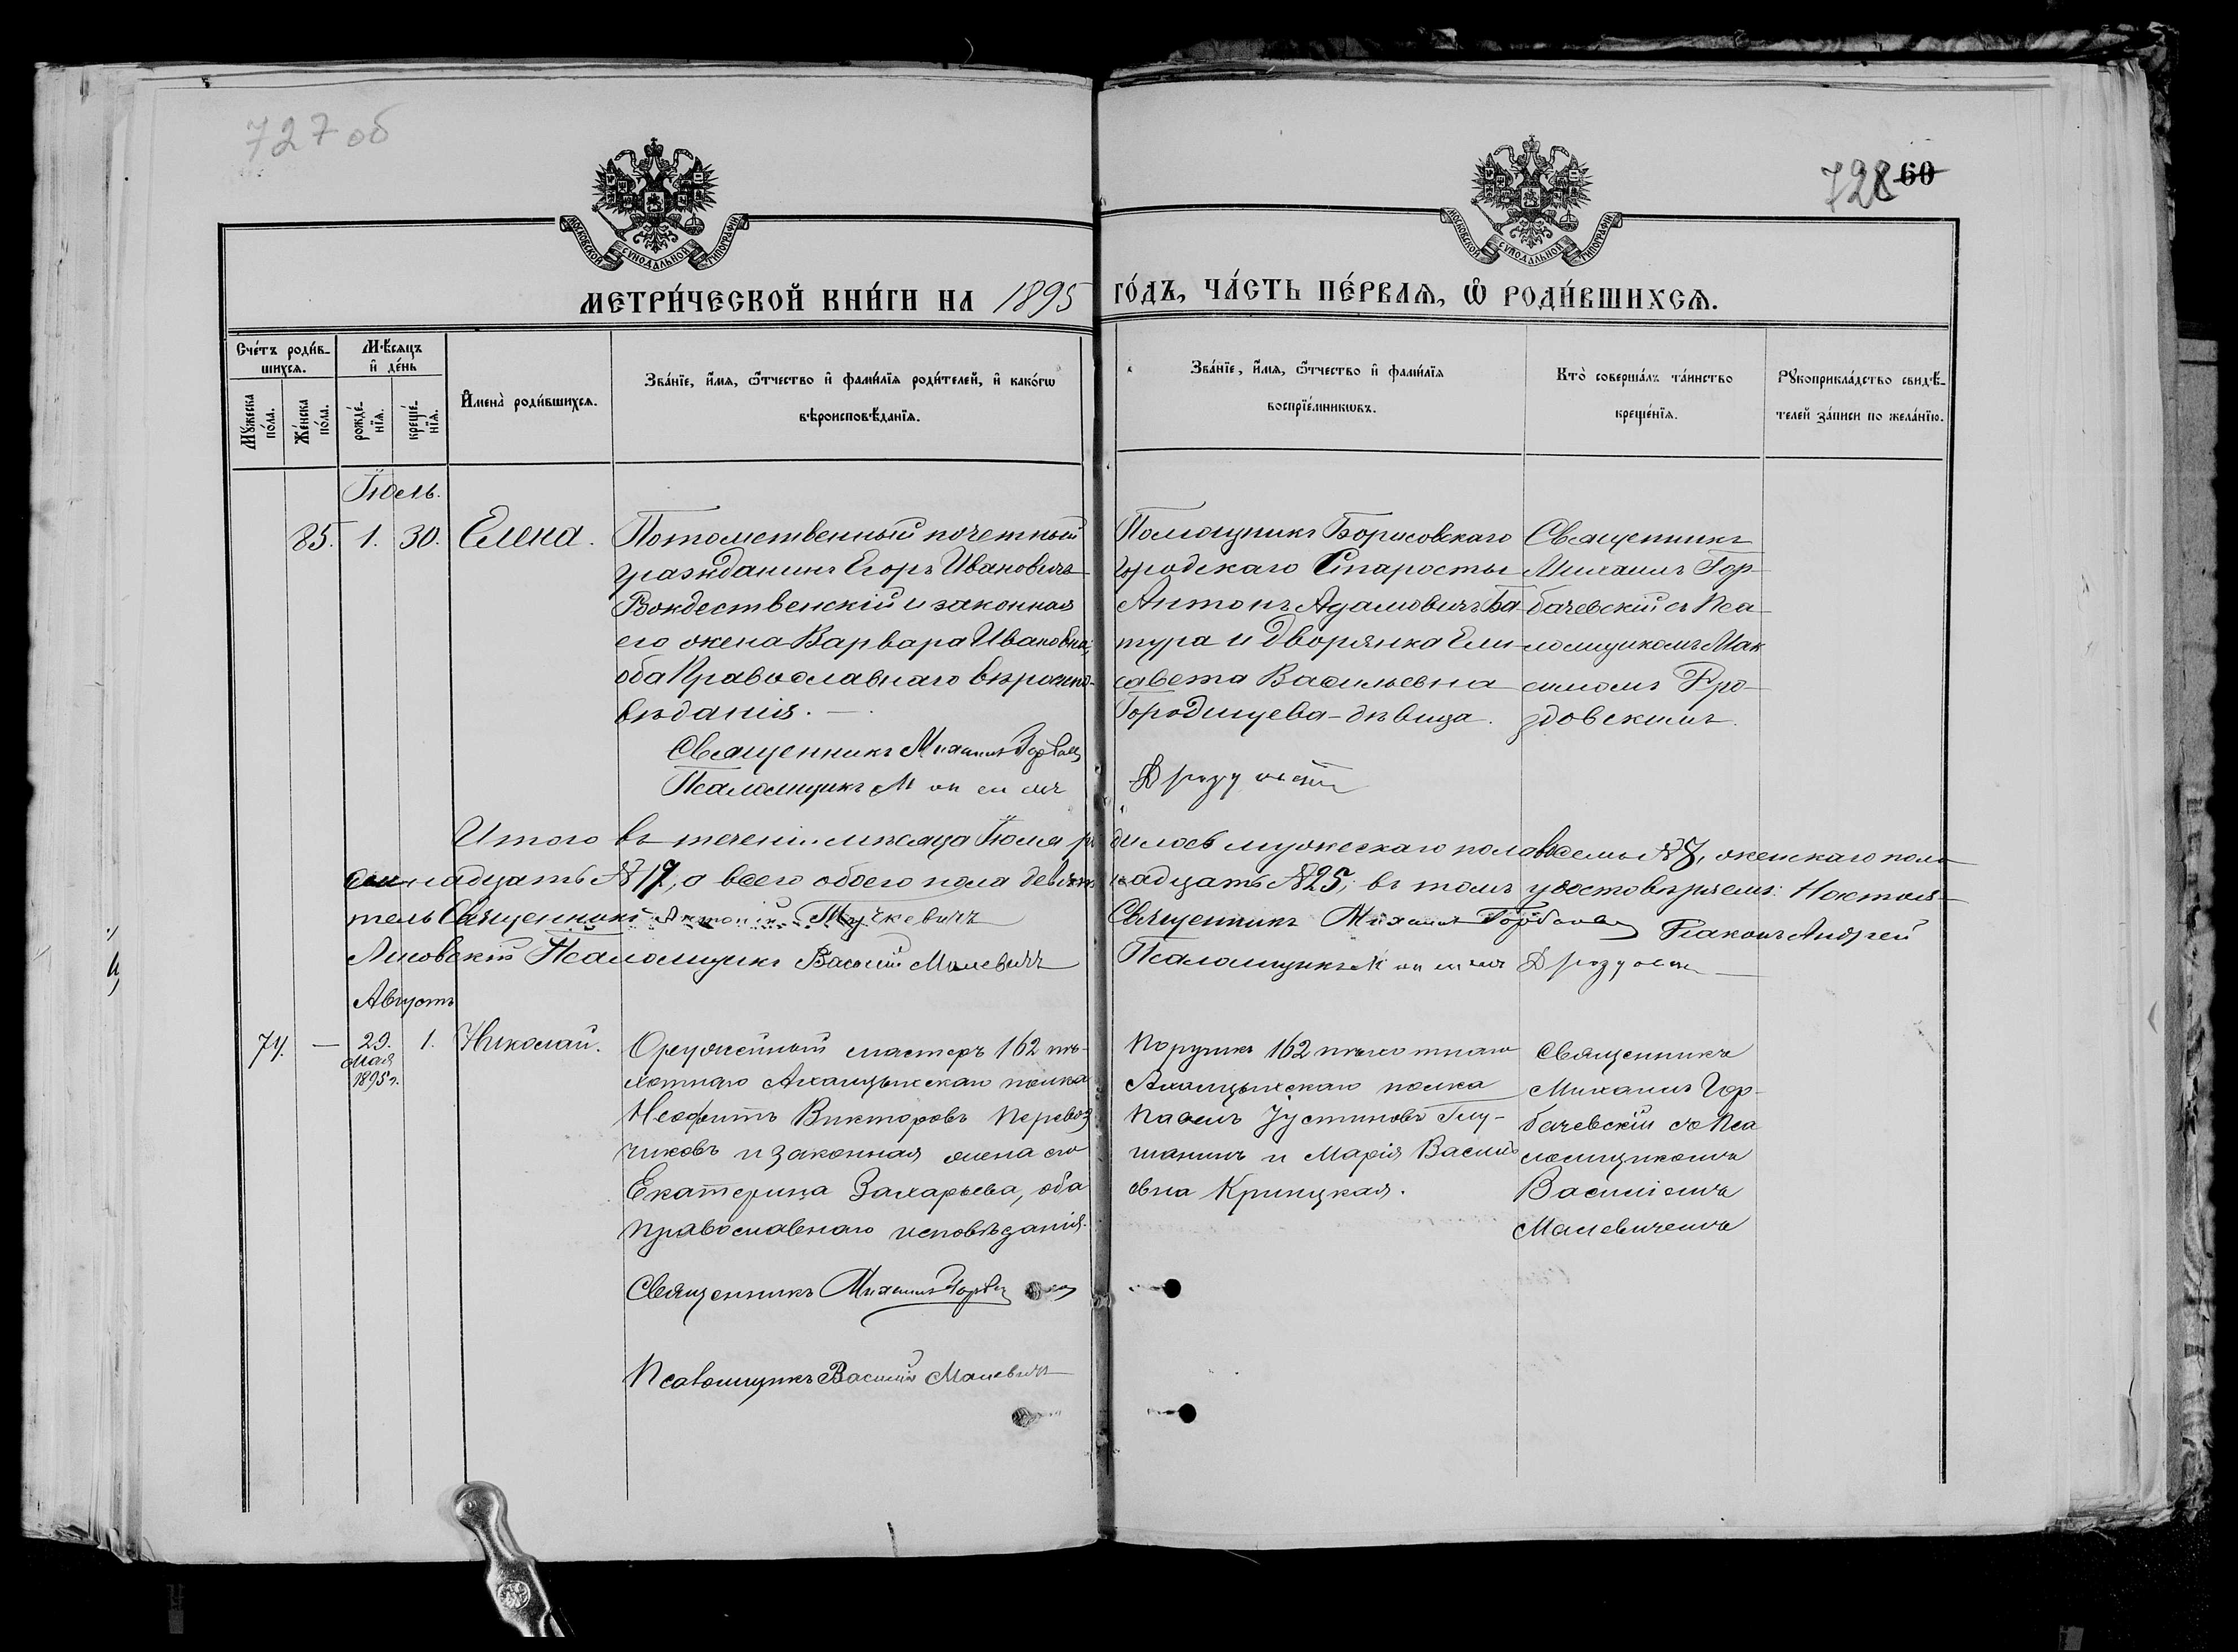 727 об
728 60
МОСКОВСКОЙ СѴНОДАЛЬНОЙ ТИПОГРАФІИ
МОСКОВСКОЙ СѴНОДАЛЬНОЙ ТИПОГРАФІИ
МЕТРИ́ЧЕСКОЙ КНИ́ГИ НА 1895 ГО́ДЪ, ЧА́СТЬ ПЕ́РВАѦ, Ѡ҆ РОДИ́ВШИХСѦ.
Сче́тъ роди́в-
шихсѧ.
Мꙋ́жеска по́ла.
Же́нска по́ла.
Мѣ́сѧцъ
и҆ де́нь
рожде́-
нїѧ.
креще́-
нїѧ.
И҆мена̀ роди́вшихсѧ.
Зва́нїе, и҆́мѧ, ѻ҆́тчество и҆ фами́лїѧ роди́телей, и҆ како́гѡ
вѣроисповѣ́данїѧ.
Зва́нїе, и҆́мѧ, ѻ҆́тчество и҆ фами́лїѧ
воспрїе́мникѡвъ.
Кто̀ соверша́лъ та́инство
креще́нїѧ.
Рꙋкоприкла́дство свидѣ́-
телей за́писи по жела́нїю.
Іюль.
85. 1. 30. Елена.
Потомственный почетный
гражданинъ Егоръ Ивановичъ
Рождественскій и законная
его жена Варвара Ивановна,
оба Православнаго вѣроиспо-
вѣданія. —
Священникъ Михаилъ
Псаломщикъ
Помощникъ Борисовскаго
городскаго Старосты
Антонъ Адамовичъ Ба-
тура и дворянка Ели-
савета Васильевна
Городищева - дѣвица.
Священникъ
Михаилъ Гор-
бачевскій съ Пса-
ломщикомъ Мак
симомъ Дро-
здовскимъ.
Итого въ теченіи мѣсяца Іюля родилось мужескаго пола восемь № 8, женскаго пола
семнадцать № 17, а всего обоего пола № 25; въ томъ удостовѣряемъ: Настоя-
тель Священникъ Антоній Тучкевичъ Священникъ Михаилъ Діаконъ Андрей
Псаломщикъ Василій Малевичъ Псаломщикъ
Августъ
74. — 29.
Мая
1895 г.
1. Николай.
Оружейный мастеръ 162 пѣ-
хотнаго Ахалцыхскаго полка
Неофитъ Викторовъ Перевоз
чиковъ и законная жена его
Екатерина Захарьева, оба
православнаго исповѣданія.
Священникъ Михаилъ
Псаломщикъ Василій Малевичъ
Поручикъ 162 пѣхотнаго
Ахалцыхскаго полка
Павелъ Іустиновъ Глу-
шанинъ и Марія Василь
евна Криицкая.
Священникъ
Михаилъ Гор-
бачевскій съ Пса
ломщикомъ
Василіемъ
Малевичемъ